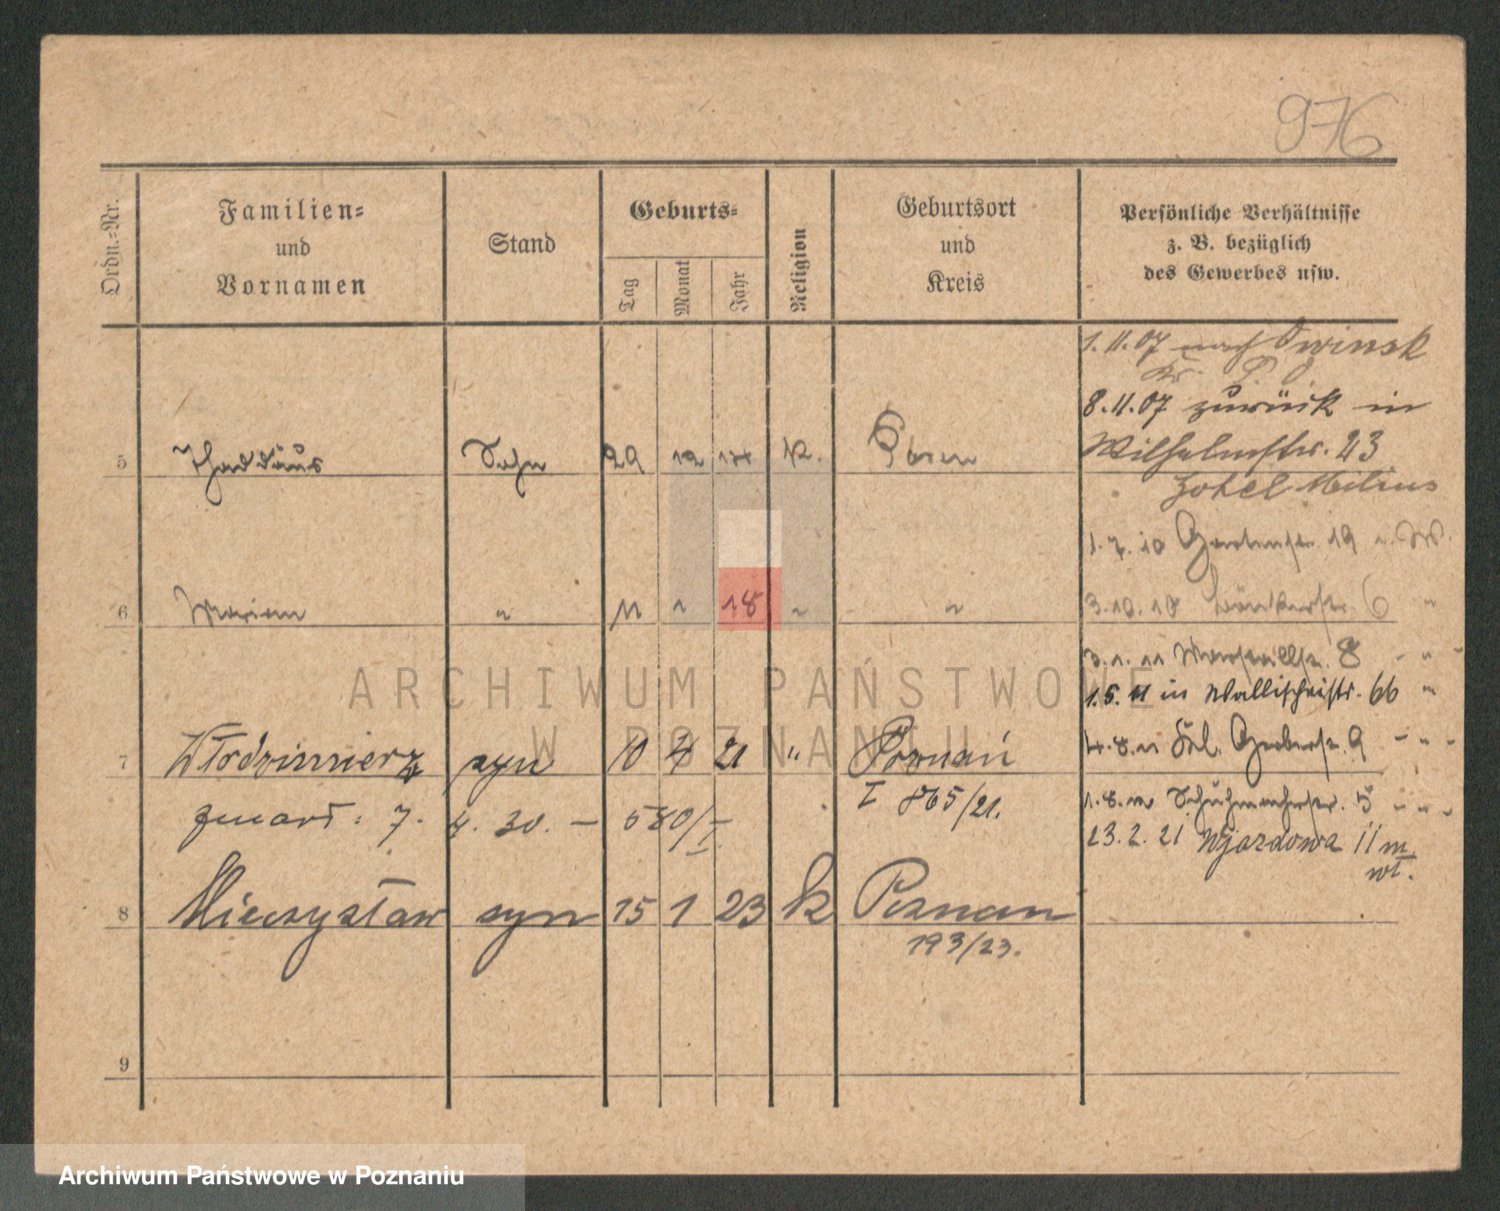 976
Ordn.-Nr.
Familien- und Vornamen
Stand
Geburts-
Tag
Monat
Jahr
Religion
Geburtsort und Kreis
Persönliche Verhältnisse
z. B. bezüglich
des Gewerbes usw.
1.11.07 nach Owinsk
8.11.07 zurück in
Wilhelmstr. 23
Hotel Mylius
5 Thaddäus Sohn 29 12 14 K. Posen
1.7.10 Gartenstr. 19
6 Marian " 11 1 18 " "
3.10.10 6 "
3.1.11 8 - " -
1.5.11 in Wallischeistr. 66 "
7 Włodzimierz syn 10 4 21 " Poznań
4.8.11 Gerberstr. 9 - " -
I 865/21.
zmarł: 7. 4. 30. – 580/I
1.8.12 Schuhmacherstr. 5 - " -
23.2.21 Wjazdowa 11 m
wł.
8 Mieczysław syn 15 1 23 k Poznan
193/23.
9
ARCHIWUM PAŃSTWOWE
W POZNANIU
Archiwum Państwowe w Poznaniu